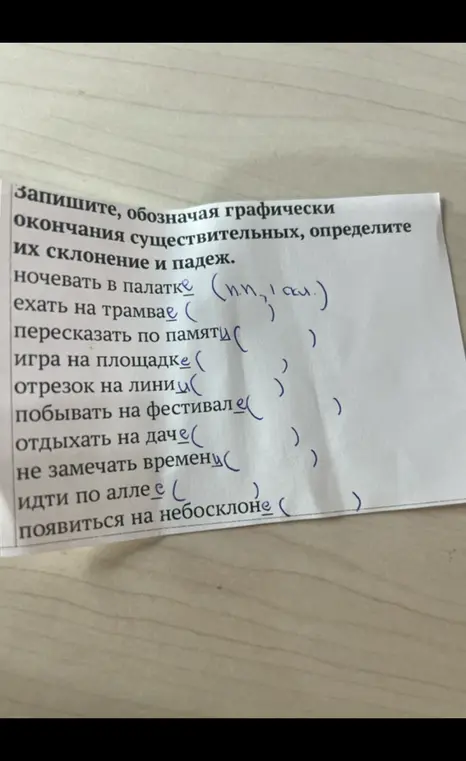 Запишите, обозначая графически
окончания существительных, определите
их склонение и падеж.
ночевать в палатке (п.п., 1 скл.)
ехать на трамвае ( )
пересказать по памяти ( )
игра на площадке ( )
отрезок на линии ( )
побывать на фестивале ( )
отдыхать на даче ( )
не замечать времени ( )
идти по аллее ( )
появиться на небосклоне ( )